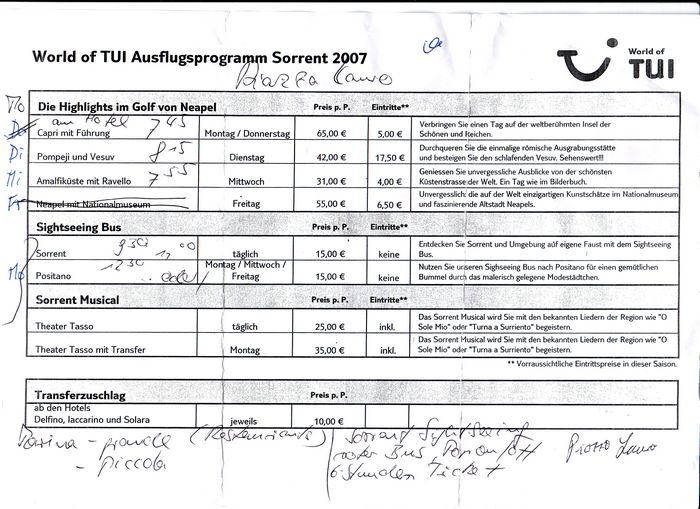 World of TUI Ausflugsprogramm Sorrent 2007
World of
TUI
Piazza Lauro
Mo
Die Highlights im Golf von Neapel Preis p. P. Eintritte**
am Hotel 7 45
Capri mit Führung Montag / Donnerstag 65,00 € 5,00 € Verbringen Sie einen Tag auf der weltberühmten Insel der
Schönen und Reichen.
Di Pompeji und Vesuv 8 15 Dienstag 42,00 € 17,50 € Durchqueren Sie die einmalige römische Ausgrabungsstätte
und besteigen Sie den schlafenden Vesuv. Sehenswert!!!
Mi Amalfiküste mit Ravello 7 55 Mittwoch 31,00 € 4,00 € Genießen Sie unvergessliche Ausblicke von der schönsten
Küstenstrasse der Welt. Ein Tag wie im Bilderbuch.
Fr Neapel mit Nationalmuseum Freitag 55,00 € 6,50 € Unvergesslich: die auf der Welt einzigartigen Kunstschätze im Nationalmuseum
und faszinierende Altstadt Neapels.
Sightseeing Bus Preis p. P. Eintritte**
Sorrent 9 30 11 00 täglich 15,00 € keine Entdecken Sie Sorrent und Umgebung auf eigene Faust mit dem Sightseeing
Bus.
Mo Positano 12 30 oder Montag / Mittwoch /
Freitag 15,00 € keine Nutzen Sie unseren Sighseeing Bus nach Positano für einen gemütlichen
Bummel durch das malerisch gelegene Modestädtchen.
Sorrent Musical Preis p. P. Eintritte**
Theater Tasso täglich 25,00 € inkl. Das Sorrent Musical wird Sie mit den bekannten Liedern der Region wie "O
Sole Mio" oder "Turna a Surriento" begeistern.
Theater Tasso mit Transfer Montag 35,00 € inkl. Das Sorrent Musical wird Sie mit den bekannten Liedern der Region wie "O
Sole Mio" oder "Turna a Surriento" begeistern.
** Vorraussichtliche Eintrittspreise in dieser Saison.
Transferzuschlag Preis p. P.
ab den Hotels
Delfino, Iaccarino und Solara jeweils 10,00 €
Marina - grande (Restaurants)
- piccola
Sorrent Sightseeing
roter Bus, Hop on/off
6 Stunden Ticket
Piazza Lauro